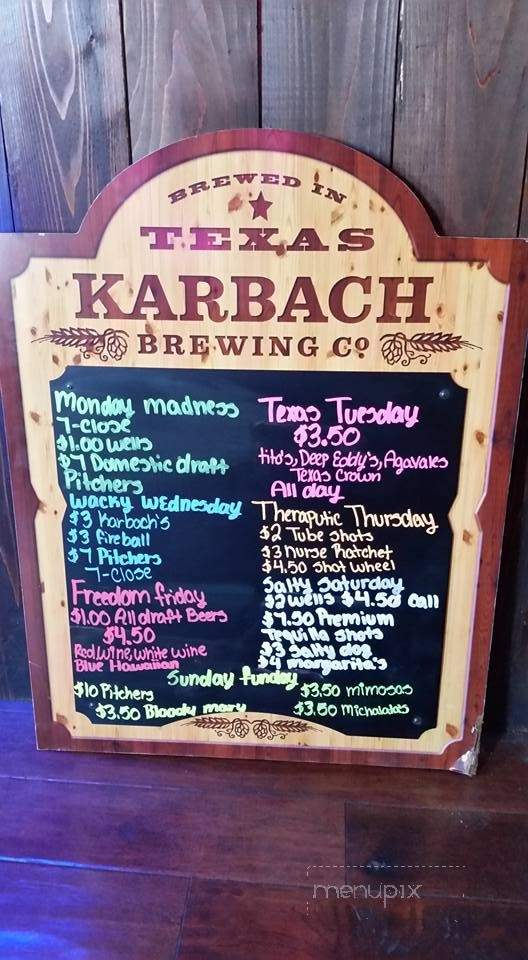 BREWED IN
TEXAS
KARBACH
BREWING Co
Monday madness
7-close
$1.00 wells
$7 Domestic draft
Pitchers
Wacky Wednesday
$3 Karbach's
$3 fireball
$7 Pitchers
7-close
Freedom friday
$1.00 All draft Beers
$4.50
Red wine, white wine
Blue Hawaiian
Texas Tuesday
$3.50
tito's, Deep Eddy's, Agavales
Texas Crown
All day
Theraputic Thursday
$2 Tube shots
$3 nurse Ratchet
$4.50 shot wheel
Salty Saturday
$3 wells $4.50 call
$7.50 Premium
Tequilla shots
$3 Salty dog
$4 margarita's
Sunday funday
$10 Pitchers
$3.50 Bloody mary
$3.50 mimosas
$3.50 Michaladas
menupix